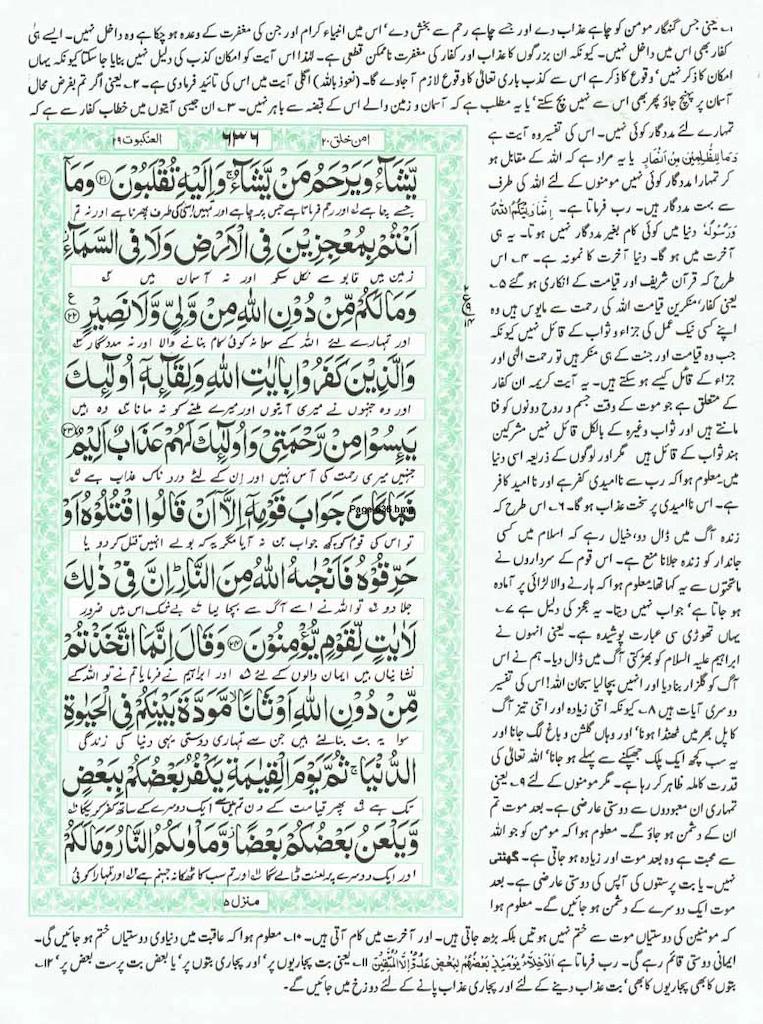 ۱۔ یعنی جس گنہگار مومن کو چاہے عذاب دے اور جسے چاہے رحم سے بخش دے‘ اس میں انبیاء کرام اور جن کی مغفرت کے وعدہ ہو چکا ہے وہ داخل نہیں۔ ایسے ہی
کفار بھی اس میں داخل نہیں۔ کیونکہ ان بزرگوں کا عذاب اور کفار کی مغفرت ناممکن قطعی ہے۔ لہٰذا اس آیت کو امکان کذب کی دلیل نہیں بنایا جا سکتا کیونکہ یہاں
امکان کا ذکر نہیں‘ وقوع کا ذکر ہے اس سے کذب باری تعالٰی کا وقوع لازم آ جاوے گا۔ (نعوذ باللہ) اگلی آیت میں اس کی تائید فرما دی ہے۔ ۲۔ یعنی اگر تم بفرض محال
آسمان پر پہنچ جاؤ پھر بھی اس سے نہیں بچ سکتے‘ یا یہ مطلب ہے کہ آسمان و زمین والے اس کے قبضہ سے باہر نہیں۔ ۳۔ ان جیسی آیتوں میں خطاب کفار سے ہے کہ
العنکبوت ۲۹
۶۳۶
امن خلق ۲۰
یَّشَآءُ وَیَرْحَمُ مَنْ یَّشَآءُ ۚ وَاِلَیْهِ تُقْلَبُوْنَ ﴿۲۱﴾ وَمَاۤ
جسے چاہے اور رحم فرماتا ہے جس پر چاہے اور تمہیں اسی کی طرف پھرنا ہے اور نہ تم
اَنْتُمْ بِمُعْجِزِیْنَ فِی الْاَرْضِ وَلَا فِی السَّمَآءِ
زمین میں قابو سے نکل سکو اور نہ آسمان میں
وَمَا لَكُمْ مِّنْ دُوْنِ اللّٰهِ مِنْ وَّلِیٍّ وَّلَا نَصِیْرٍ ﴿۲۲﴾
اور تمہارے لئے اللہ کے سوا نہ کوئی کام بنانے والا اور نہ مددگار
وَالَّذِیْنَ كَفَرُوْا بِاٰیٰتِ اللّٰهِ وَلِقَآئِهٖۤ اُولٰٓئِكَ
اور وہ جنہوں نے میری آیتوں اور میرے ملنے کو نہ مانا وہ ہیں
یَئِسُوْا مِنْ رَّحْمَتِیْ وَاُولٰٓئِكَ لَهُمْ عَذَابٌ اَلِیْمٌ ﴿۲۳﴾
جنہیں میری رحمت کی آس نہیں اور ان کے لئے درد ناک عذاب ہے
فَمَا كَانَ جَوَابَ قَوْمِهٖۤ اِلَّاۤ اَنْ قَالُوا اقْتُلُوْهُ اَوْ
Page-636.bmp
تو اس کی قوم کو کچھ جواب بن نہ آیا مگر یہ کہ بولے انہیں قتل کر دو یا
حَرِّقُوْهُ فَاَنْجٰىهُ اللّٰهُ مِنَ النَّارِ ؕ اِنَّ فِیْ ذٰلِكَ
جلا دو تو اللہ نے اسے آگ سے بچا لیا بے شک اس میں ضرور
لَاٰیٰتٍ لِّقَوْمٍ یُّؤْمِنُوْنَ ﴿۲۴﴾ وَقَالَ اِنَّمَا اتَّخَذْتُمْ
نشانیاں ہیں ایمان والوں کے لئے اور ابراہیم نے فرمایا تم نے تو اللہ کے
مِّنْ دُوْنِ اللّٰهِ اَوْثَانًا ۙ مَّوَدَّةَ بَیْنِكُمْ فِی الْحَیٰوةِ
سوا یہ بت بنا لئے ہیں جن سے تمہاری دوستی یہی دنیا کی زندگی
الدُّنْیَا ۚ ثُمَّ یَوْمَ الْقِیٰمَةِ یَكْفُرُ بَعْضُكُمْ بِبَعْضٍ
تک ہے پھر قیامت کے دن تم میں ایک دوسرے کے ساتھ کفر کریگا
وَّیَلْعَنُ بَعْضُكُمْ بَعْضًا ؗ وَّمَاْوٰىكُمُ النَّارُ وَمَا لَكُمْ
اور ایک دوسرے پر لعنت ڈالے گا اور تم سب کا ٹھکانہ جہنم ہے اور تمہارا کوئی
منزل ۵
تمہارے لئے مددگار کوئی نہیں۔ اس کی تفسیر وہ آیت ہے
وَمَا لِلظّٰلِمِیْنَ مِنْ اَنْصَارٍ یا یہ مراد ہے کہ اللہ کے مقابل ہو
کر تمہارا مددگار کوئی نہیں مومنوں کے لئے اللہ کی طرف
سے بہت مددگار ہیں۔ رب فرماتا ہے۔ اِنَّمَا وَلِیُّكُمُ اللّٰهُ
وَرَسُوْلُهٗ دنیا میں کوئی کام بغیر مددگار نہیں ہوتا۔ یہ ہی
آخرت میں ہو گا۔ دنیا آخرت کا نمونہ ہے۔ ۴۔ اس
طرح کہ قرآن شریف اور قیامت کے انکاری ہو گئے ۵۔
یعنی کفار‘ منکرین قیامت اللہ کی رحمت سے مایوس ہیں وہ
اپنے کسی نیک عمل کی جزاء و ثواب کے قائل نہیں کیونکہ
جب وہ قیامت اور جنت کے ہی منکر ہیں تو رحمت الٰہی اور
جزاء کے قائل کیسے ہو سکتے ہیں۔ یہ آیت کریمہ ان کفار
کے متعلق ہے جو موت کے وقت جسم و روح دونوں کو فنا
مانتے ہیں اور ثواب وغیرہ کے بالکل قائل نہیں مشرکین
ہند ثواب کے قائل ہیں مگر اور لوگوں کے ذریعہ اسی دنیا
میں۔ معلوم ہوا کہ رب سے ناامیدی کفر ہے اور ناامید کافر
ہے۔ اس ناامیدی پر سخت عذاب ہو گا۔ ۶۔ اس طرح کہ
زندہ آگ میں ڈال دو‘ خیال رہے کہ اسلام میں کسی
جاندار کو زندہ جلانا منع ہے۔ اس قوم کے سرداروں نے
ماتحتوں سے یہ کہا تھا معلوم ہوا کہ ہارنے والا لڑائی پر آمادہ
ہو جاتا ہے‘ جواب نہیں دیتا۔ یہ عجز کی دلیل ہے ۷۔
یہاں تھوڑی سی عبارت پوشیدہ ہے۔ یعنی انہوں نے
ابراہیم علیہ السلام کو بھڑکتی آگ میں ڈال دیا۔ ہم نے اس
آگ کو گلزار بنا دیا اور انہیں بچا لیا سبحان اللہ! اس کی تفسیر
دوسری آیات ہیں ۸۔ کیونکہ اتنی زیادہ اور اتنی تیز آگ
کا پل بھر میں ٹھنڈا ہونا‘ اور وہاں گلشن و باغ لگ جانا اور
یہ سب کچھ ایک پلک جھپکنے سے پہلے ہو جانا‘ اللہ تعالٰی کی
قدرت کاملہ ظاہر کر رہا ہے۔ مگر مومنوں کے لئے ۹۔ یعنی
تمہاری ان معبودوں سے دوستی عارضی ہے۔ بعد موت تم
ان کے دشمن ہو جاؤ گے۔ معلوم ہوا کہ مومن کو جو اللہ
سے محبت ہے وہ بعد موت اور زیادہ ہو جاتی ہے۔ گھٹتی
نہیں۔ یا بت پرستوں کی آپس کی دوستی عارضی ہے۔ بعد
موت ایک دوسرے کے دشمن ہو جائیں گے۔ معلوم ہوا
کہ مومنین کی دوستیاں موت سے ختم نہیں ہوتیں بلکہ بڑھ جاتی ہیں۔ اور آخرت میں کام آتی ہیں۔ ۱۰۔ معلوم ہوا کہ عاقبت میں دنیاوی دوستیاں ختم ہو جائیں گی۔
ایمانی دوستی قائم رہے گی۔ رب فرماتا ہے اَلْاَخِلَّآءُ یَوْمَئِذٍۭ بَعْضُهُمْ لِبَعْضٍ عَدُوٌّ اِلَّا الْمُتَّقِیْنَ ۱۱۔ یعنی بت پجاریوں پر‘ اور پجاری بتوں پر‘ یا بعض بت پرست بعض پر‘ ۱۲۔
بتوں کا بھی پجاریوں کا بھی‘ بت عذاب دینے کے لئے اور پجاری عذاب پانے کے لئے دوزخ میں جائیں گے۔